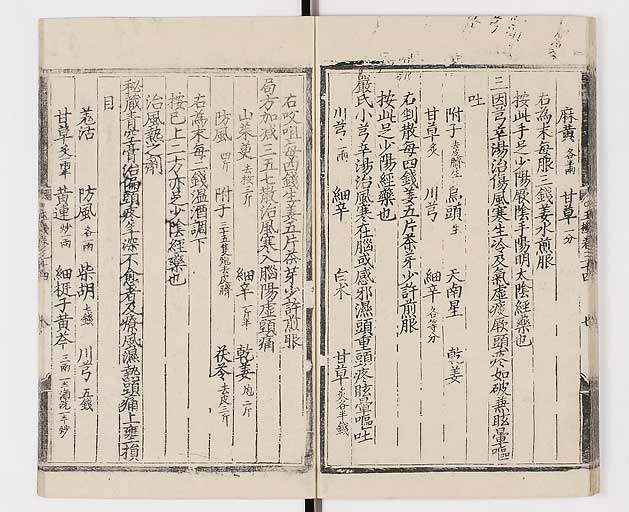 麻黃各一兩 甘草一分
右爲末每服三錢姜水煎服
按此手足少陽厥陰手陽明太陰經藥也
三因芎辛湯治傷風寒生冷及氣虛痰厥頭疼如破兼眩暈嘔
吐
附子去皮臍生 烏頭生 天南星 乾姜
甘草炙 川芎 細辛各等分
右剉散每四錢姜五片茶芽少許煎服
按此足少陽厥陰經藥也
嚴氏小芎辛湯治風寒在腦或感邪濕頭重頭疼眩暈嘔吐
川芎一兩 細辛 白朮 甘草炙各半錢
右㕮咀每四錢生姜五片茶芽少許煎服
局方加減三五七散治風寒入腦陽虛頭痛
山茱萸去核三斤 細辛一斤半 乾姜炮二斤
防風四斤 附子三十五隻炮去皮臍 茯苓去皮三斤
右爲末每二錢溫酒調下
按已上二方亦足少陰經藥也
治風熱之劑
秘藏清空膏治偏頭疼年深不愈者及療風濕熱頭痛上壅損
目
羌活 防風各一兩 柴胡七錢 川芎五錢
甘草炙一兩半 黃連炒一兩 細挺子黃芩三兩